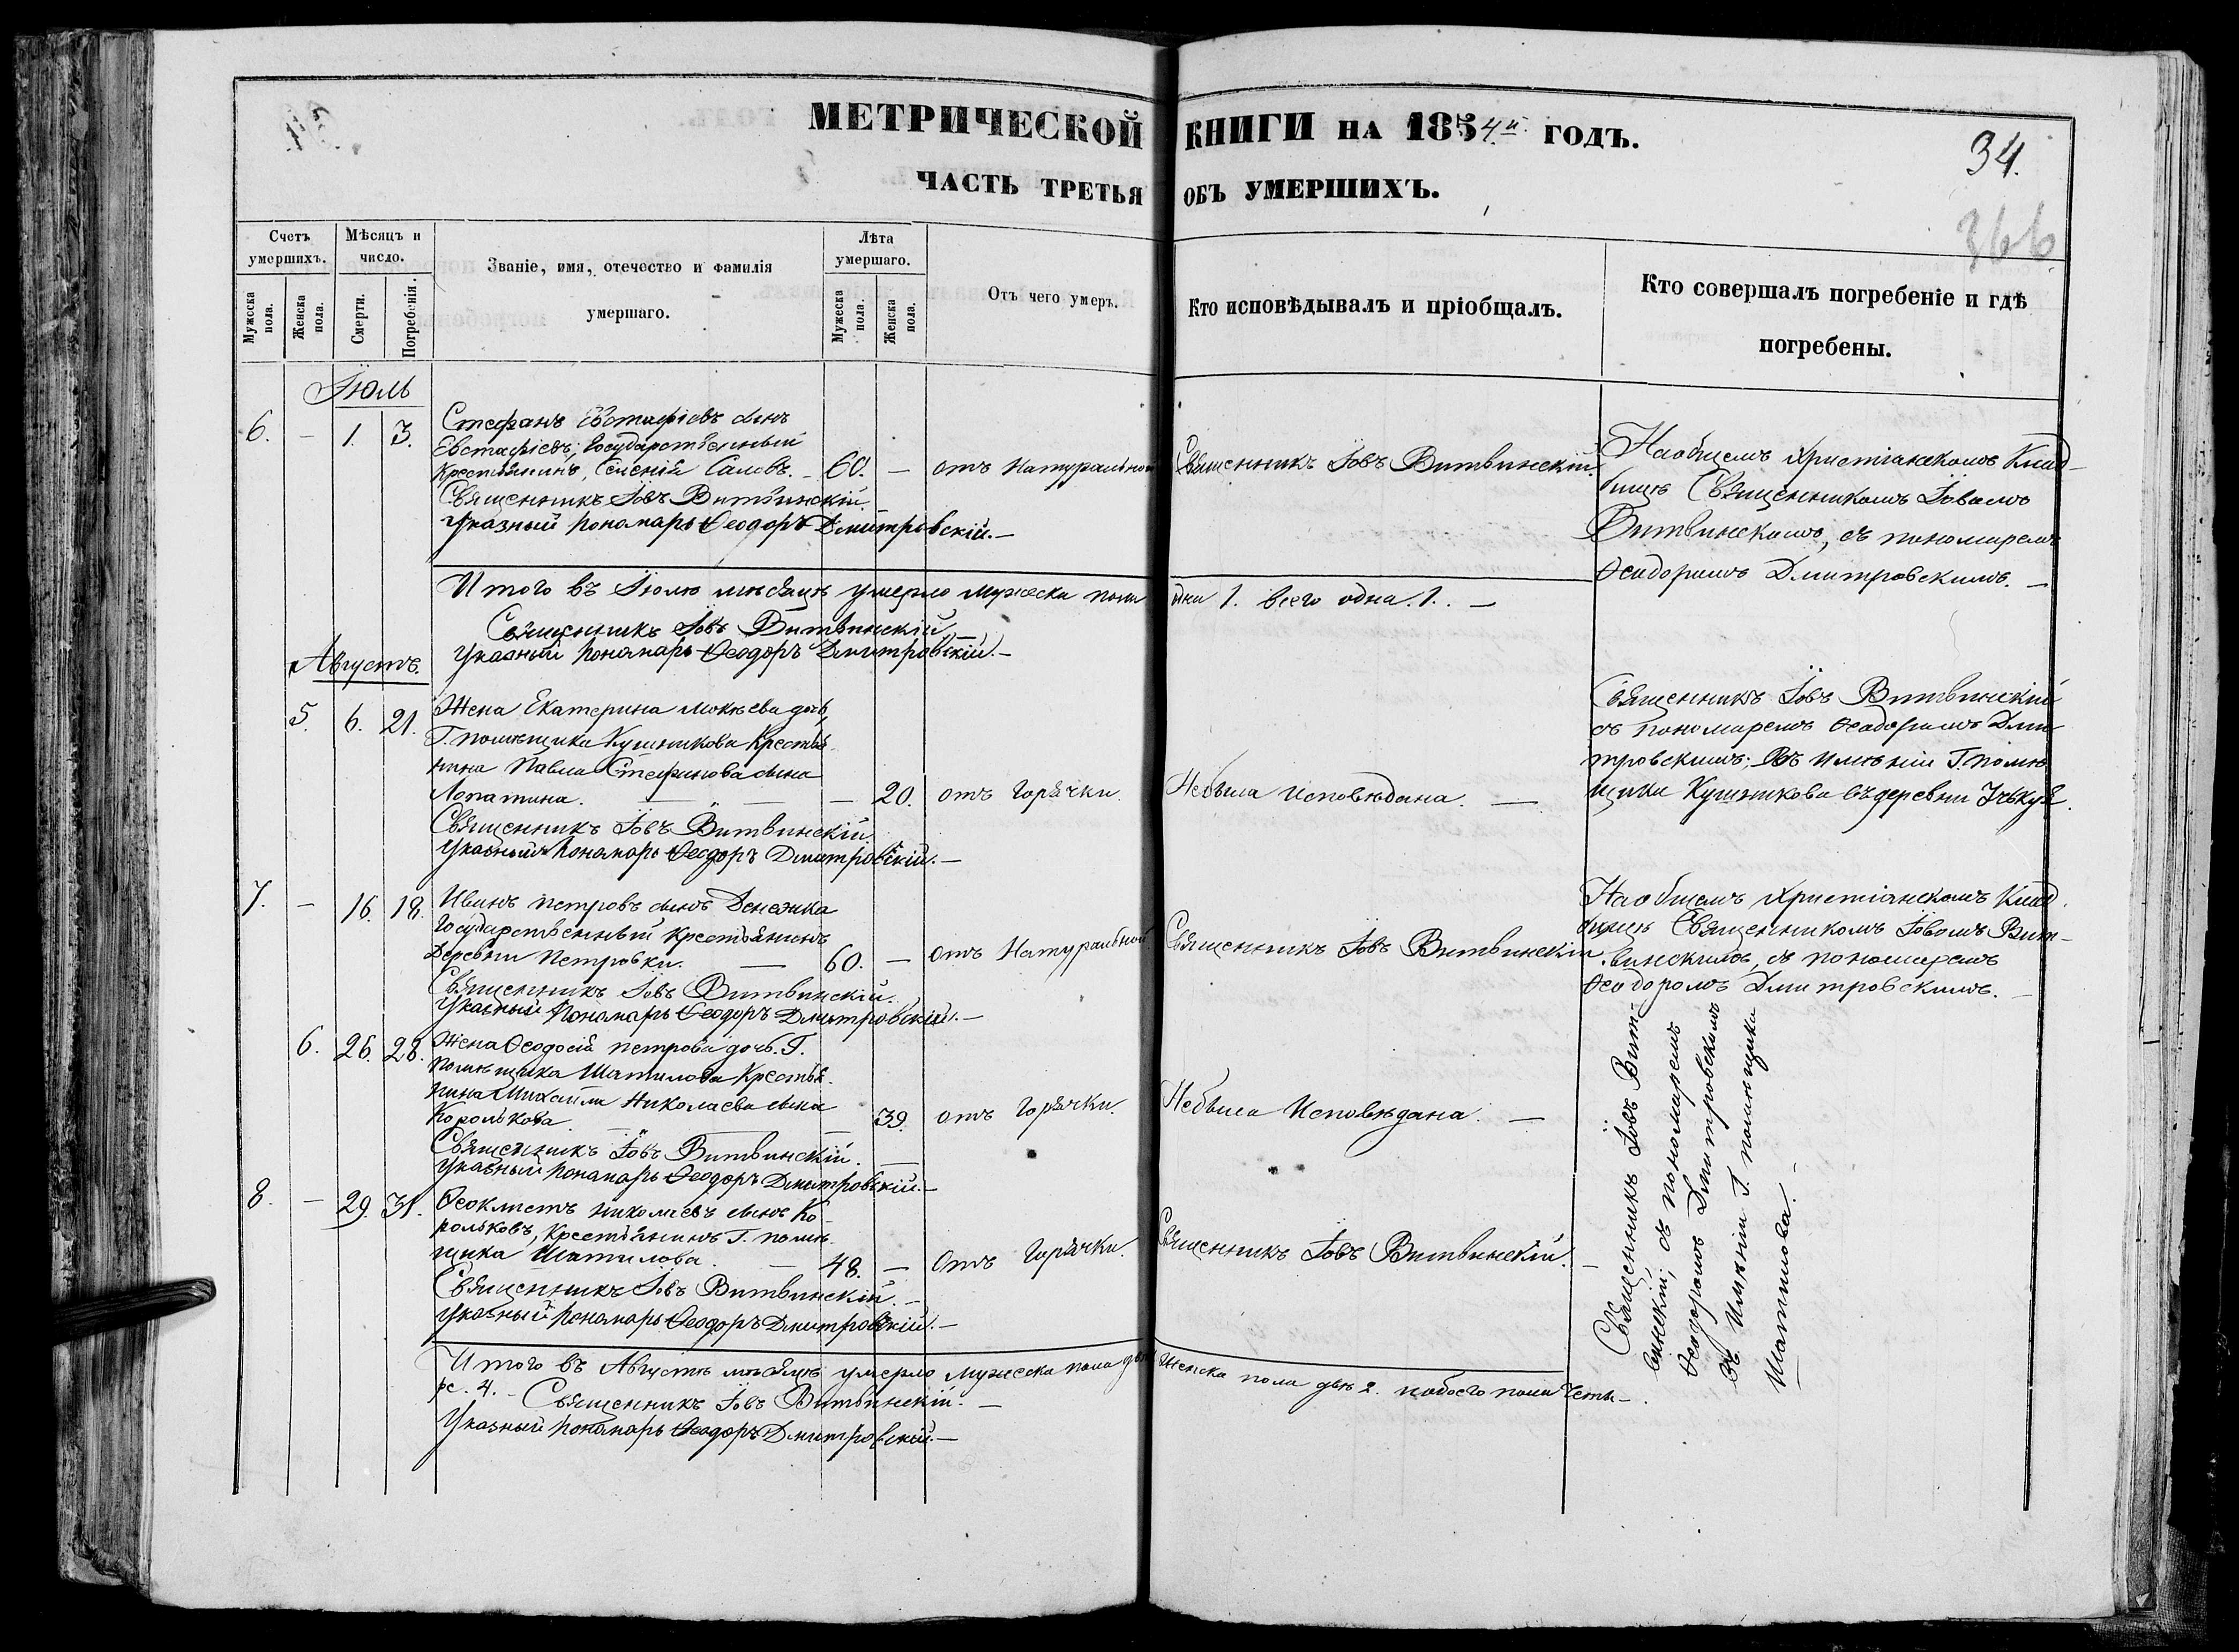 МЕТРИЧЕСКОЙ КНИГИ НА 1854й ГОДЪ.
34.
ЧАСТЬ ТРЕТЬЯ ОБЪ УМЕРШИХЪ.
366
Счетъ умершихъ.
Мѣсяцъ и число.
Званіе, имя, отечество и фамилія умершаго.
Лѣта умершаго.
Отъ чего умеръ.
Кто исповѣдывалъ и пріобщалъ.
Кто совершалъ погребеніе и гдѣ погребены.
Мужеска пола.
Женска пола.
Смерти.
Погребенія.
Мужеска пола.
Женска пола.
Іюль
6. — 1. 3.
Стефанъ Евстафіевъ сынъ
Евстафіевъ, Государственный
Крестьянинъ, Селеній Саловъ. — 60. — отъ Натуральной
Священникъ Іовъ Витвинскій.
Указный Пономарь Ѳеодоръ Дмитровскій. —
Священникъ Іовъ Витвинскій
На общемъ Христіанскомъ Клад-
бищѣ Священникомъ Іовомъ
Витвинскимъ, съ пономаремъ
Ѳеодоромъ Дмитровскимъ. —
Итого въ Іюлѣ мѣсяцѣ умерло Мужеска пола одна 1. всего одна. 1. —
Священникъ Іовъ Витвинскій
Указный Пономарь Ѳеодоръ Дмитровскій. —
Августъ.
5. 6. 21.
Жена Екатерина Мокѣева дочь,
Г. помѣщика Кушникова Крестья-
нина Павла Стефанова сына
Лопатина. — 20. отъ Горячки. Небыла Исповѣдана. —
Священникъ Іовъ Витвинскій
Указный Пономарь Ѳеодоръ Дмитровскій. —
Священникъ Іовъ Витвинскій
съ пономаремъ Ѳеодоромъ Дми-
тровскимъ; Въ Имѣніи Г. помѣ-
щика Кушникова въ деревни
7. — 16. 18.
Иванъ Петровъ сынъ Денежка
Государственный Крестьянинъ
Деревни Петровки. — 60. — отъ Натуральной. Священникъ Іовъ Витвинскій
Священникъ Іовъ Витвинскій.
Указный Пономарь Ѳеодоръ Дмитровскій. —
На общемъ Христіанскомъ Клад-
бищѣ Священникомъ Іовомъ Вит-
винскимъ, съ пономаремъ
Ѳеодоромъ Дмитровскимъ. —
6. 26. 28.
Жена Ѳеодосія Петрова дочь. Г.
Помѣщика Шатилова Крестья-
нина Михаила Николаева сына
Королькова — 39. отъ Горячки. Небыла Исповѣдана. —
Священникъ Іовъ Витвинскій.
Указный Пономарь Ѳеодоръ Дмитровскій. —
8. — 29. 31.
Ѳеоктистъ Николаевъ сынъ Ко-
рольковъ, Крестьянинъ Г. помѣ-
щика Шатилова. — 48. — Отъ Горячки. Священникъ Іовъ Витвинскій. —
Священникъ Іовъ Витвинскій. —
Указный Пономарь Ѳеодоръ Дмитровскій. —
Священникъ Іовъ Вит-
винскій; съ пономаремъ
Ѳеодоромъ Дмитровскимъ
Въ Имѣніи Г. помѣщика
Шатилова. —
Итого въ Августѣ мѣсяцѣ умерло Мужеска пола два Женска пола двѣ 2. и обоего пола Четы-
ре. 4. — Священникъ Іовъ Витвинскій. —
Указный Пономарь Ѳеодоръ Дмитровскій. —